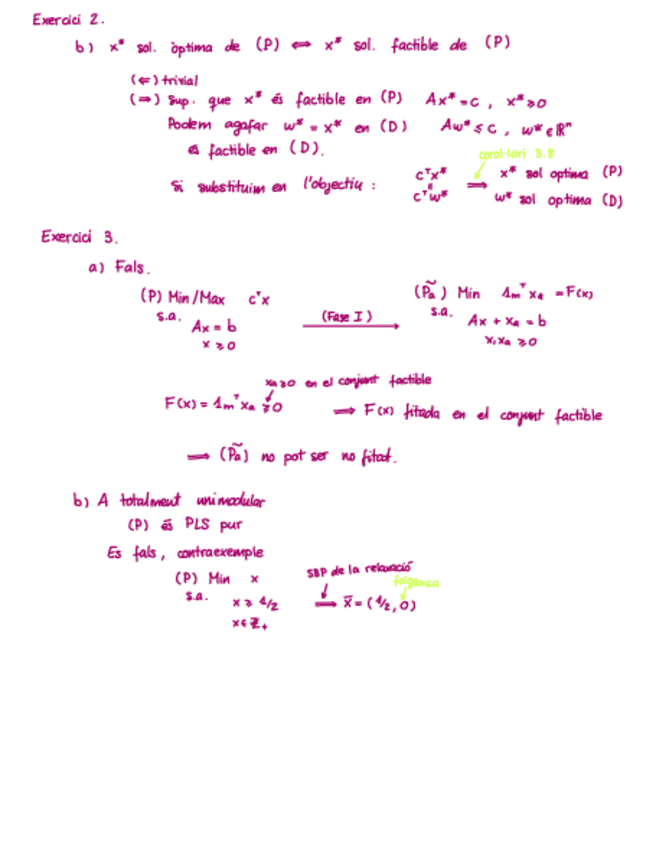 Exercici 2.
b) x* sol. òptima de (P) ⟺ x* sol. factible de (P)
(⇐) trivial
(⇒) Sup. que x* és factible en (P) Ax* = c, x* ≥ 0
Podem agafar w* = x* en (D) Aw* ≤ c, w* ∈ ℝⁿ
és factible en (D).
corol·lari 3.8
Si substituim en l'objectiu: cᵀx* = cᵀw* ⟹ x* sol optima (P)
w* sol optima (D)
Exercici 3.
a) Fals.
(P) Min/Max cᵀx (Fase I) (P̃a) Min 1mᵀxa = F(x)
s.a. Ax = b s.a. Ax + xa = b
x ≥ 0 x, xa ≥ 0
xa ≥ 0 en el conjunt factible
F(x) = 1mᵀxa ≥ 0 ⟹ F(x) fitada en el conjunt factible
⟹ (P̃a) no pot ser no fitat.
b) A totalment unimodular
(P) és PLS pur
Es fals, contraexemple
(P) Min x SBP de la relaxació
folgança
s.a. x ≥ 1/2 ⟹ x̄ = (1/2, 0)
x ∈ ℤ₊